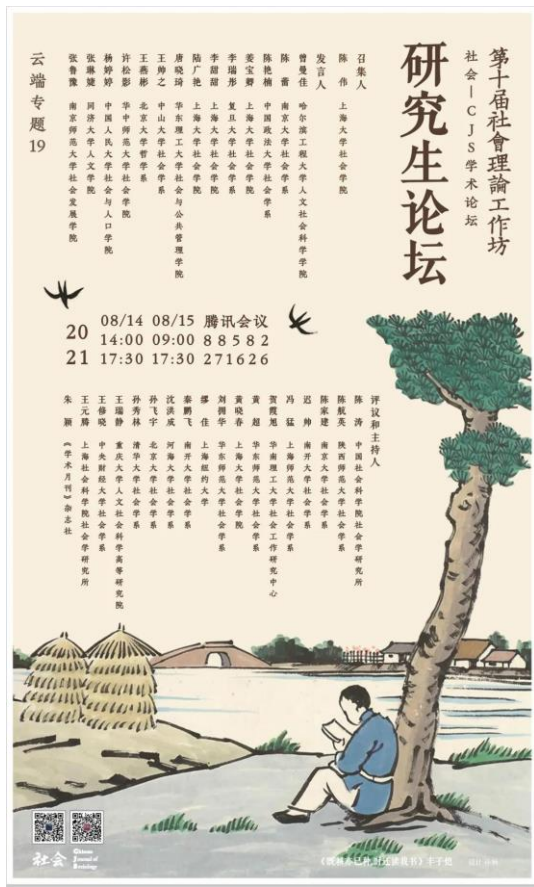 第十届社會理論工作坊
社会—CJS学术论坛
研究生论坛
召集人
陈 伟 上海大学社会学院
发言人
曾曼佳 哈尔滨工程大学人文社会科学学院
陈 蕾 南京大学社会学系
陈艳楠 中国政法大学社会学系
姜宝卿 上海大学社会学院
李瑞彤 复旦大学社会学系
李甜甜 上海大学社会学院
陆广艳 上海大学社会学院
唐晓琦 华东理工大学社会与公共管理学院
王帅之 中山大学社会学系
王燕彬 北京大学哲学系
许松影 华中师范大学社会学院
杨婷婷 中国人民大学社会与人口学院
张琳婕 同济大学人文学院
张鲁豫 南京师范大学社会发展学院
云端专题19
20 08/14 08/15 腾讯会议
14:00 09:00 88582
21 17:30 17:30 271626
评议和主持人
陈 涛 中国社会科学院社会学研究所
陈航英 陕西师范大学社会学系
陈家建 南京大学社会学系
迟 帅 南开大学社会学系
冯 猛 上海师范大学社会学系
贺霞旭 华南理工大学社会工作研究中心
黄 超 华东师范大学社会学系
黄晓春 上海大学社会学院
刘拥华 华东师范大学社会学系
缪 佳 上海纽约大学
秦鹏飞 南开大学社会学系
沈洪成 河海大学社会学系
孙飞宇 北京大学社会学系
孙秀林 清华大学社会学系
王瑞静 重庆大学人文社会科学高等研究院
王修晓 中央财经大学社会学系
王元腾 上海社会科学院社会学研究所
朱 颖 《学术月刊》杂志社
社会
Chinese
Journal of
Sociology